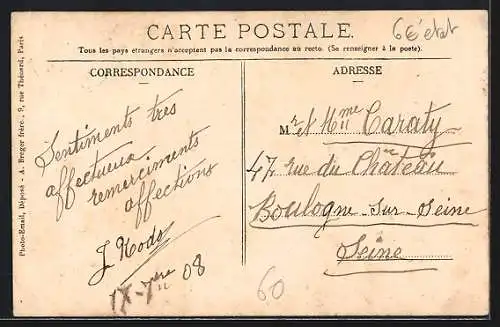 CARTE POSTALE.
6€ état
Tous les pays étrangers n'acceptent pas la correspondance au recto. (Se renseigner à la poste).
CORRESPONDANCE
ADRESSE
Sentiments très
affectueux
remerciments
affections
J.
08
Mr et Mme Caraty
47 rue du Château
Boulogne-sur-Seine
Seine
60
Photo-Email, Déposé - A. Breger frère, 9, rue Thénard, Paris